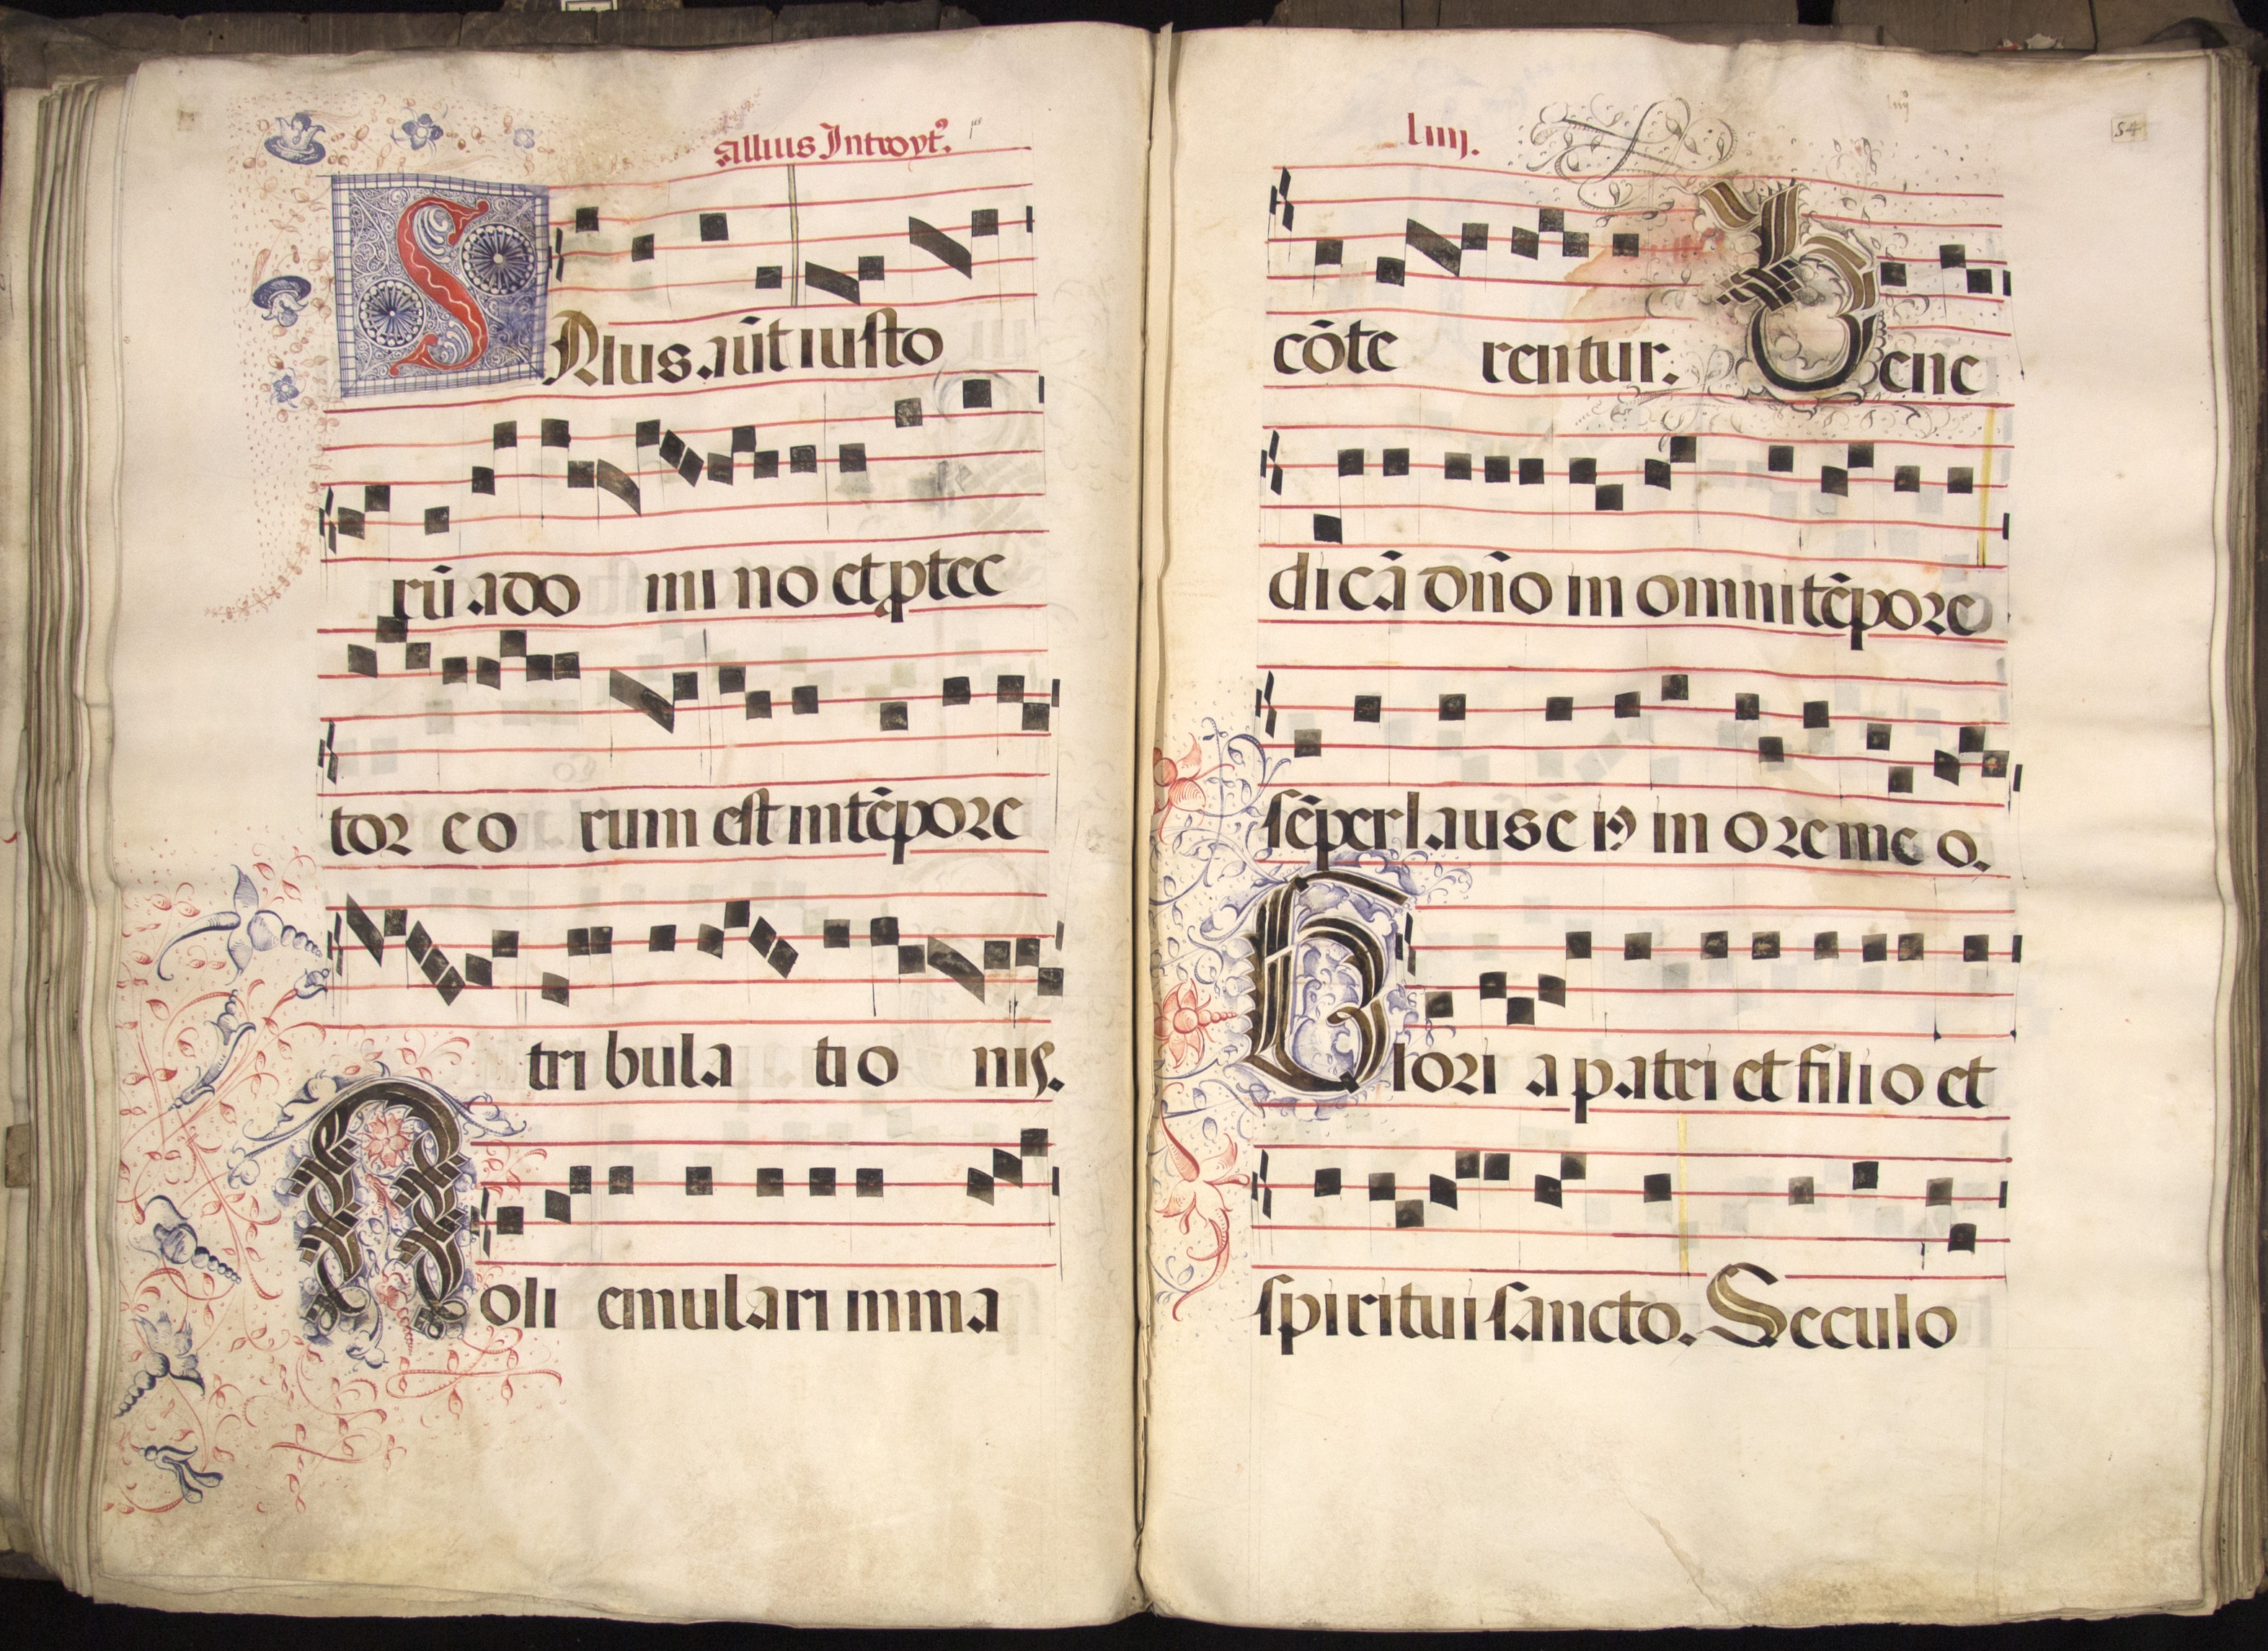 Allius Introyt9.
SAlus.aūt iusto
rū ado mi no et ptec
tor eo rum est in tēpore
tri bula tio nis.
Noli emulari in ma
liiij.
54
cōte rentur. Bene
dicā dño in omni tēpore
sēper laus e i9 in ore me o.
Glori a patri et filio et
spiritui sancto. Seculo